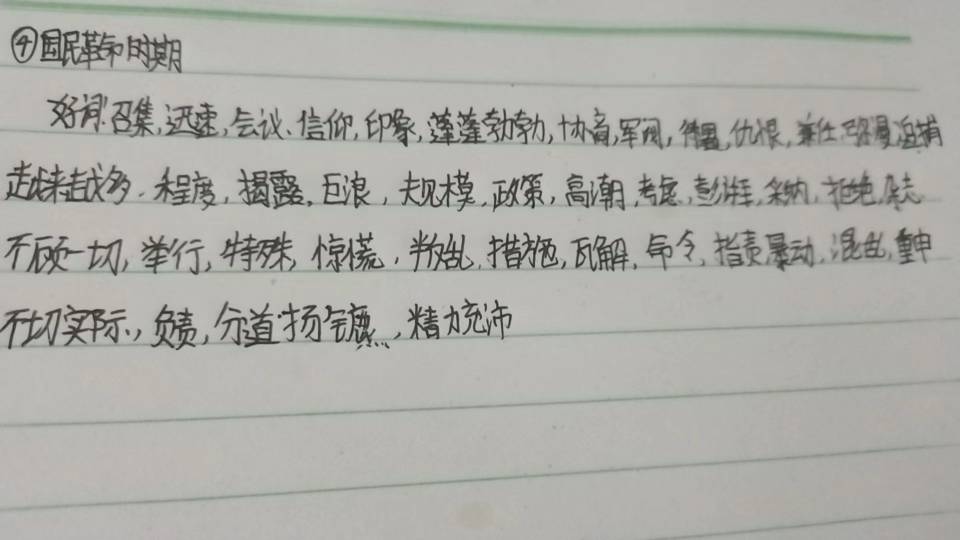 ④国民革命时期
好词:召集,迅速,会议、信仰,印象,蓬蓬勃勃,协商,军阀,仇恨,兼任
越来越多.程度,揭露,巨浪,大规模,政策,高潮,考虑,澎湃,采纳,拒绝,杂志
不顾一切,举行,特殊,惊慌,判乱,措施,瓦解,命令,指责,暴动,混乱,重申
不切实际,负责,分道扬镳,精力充沛